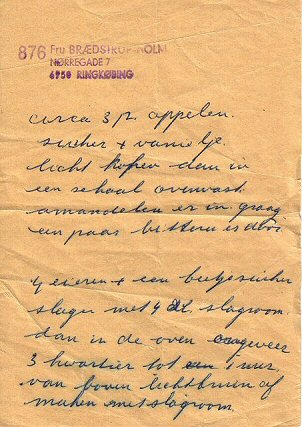 876 Fru BRÆDSTRUP-HOLM
NØRREGADE 7
6950 RINGKØBING
circa 3 p. appelen.
suiker + vanielje.
licht koken dan in
een schaal ovenvast.
amandelen er in graag
een paar bittere is door
4 eieren + een beetje suiker
slagen met 4 DL. slagroom
dan in de oven ongeveer
3 kwartier tot 1 uur,
van boven lichtbruin af
maken met slagroom.